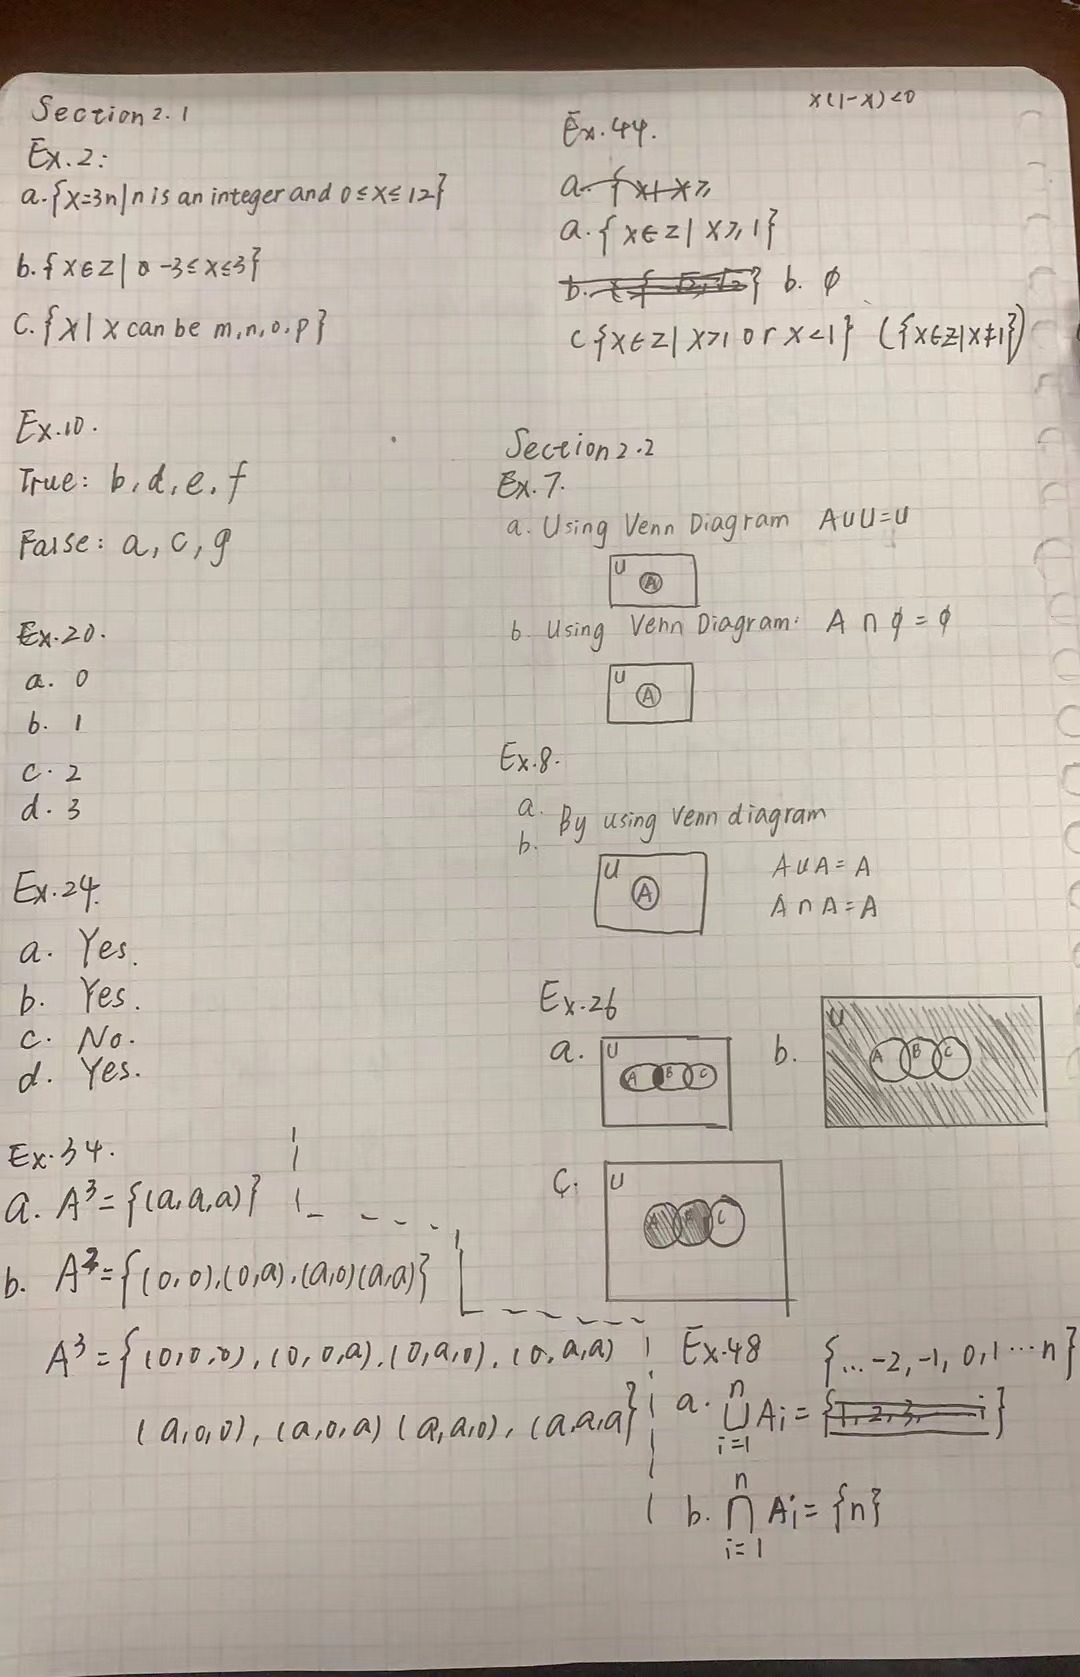 Section 2.1
Ex.2:
a.{x=3n|n is an integer and 0≤x≤12}
b.{x∈Z| -3≤x≤3}
C.{x|x can be m,n,o,p}
Ex.10.
True: b,d,e,f
False: a,c,g
Ex.20.
a. 0
b. 1
c. 2
d. 3
Ex.24.
a. Yes.
b. Yes.
c. No.
d. Yes.
Ex.34.
a. A³={(a,a,a)}
b. A²={(0,0),(0,a),(a,0)(a,a)}
A³={(0,0,0),(0,0,a),(0,a,0),(0,a,a)
(a,0,0),(a,0,a)(a,a,0),(a,a,a}
x(1-x)<0
Ex.44.
a. {x|x≥
a.{x∈Z|x≥1}
b. ∅
C{x∈Z|x>1 or x<1} ({x∈Z|x≠1})
Section 2.2
Ex.7.
a. Using Venn Diagram A∪U=U
U
A
b. Using Venn Diagram: A∩∅=∅
U
A
Ex.8.
a. By using Venn diagram
b.
U
A
A∪A=A
A∩A=A
Ex.26
a.
U
A B C
b.
U
A B C
C.
U
C
Ex.48
{...-2,-1,0,1...n}
a. ⋃ⁿᵢ₌₁ Ai={1,2,3, i}
b. ⋂ⁿᵢ₌₁ Ai={n}